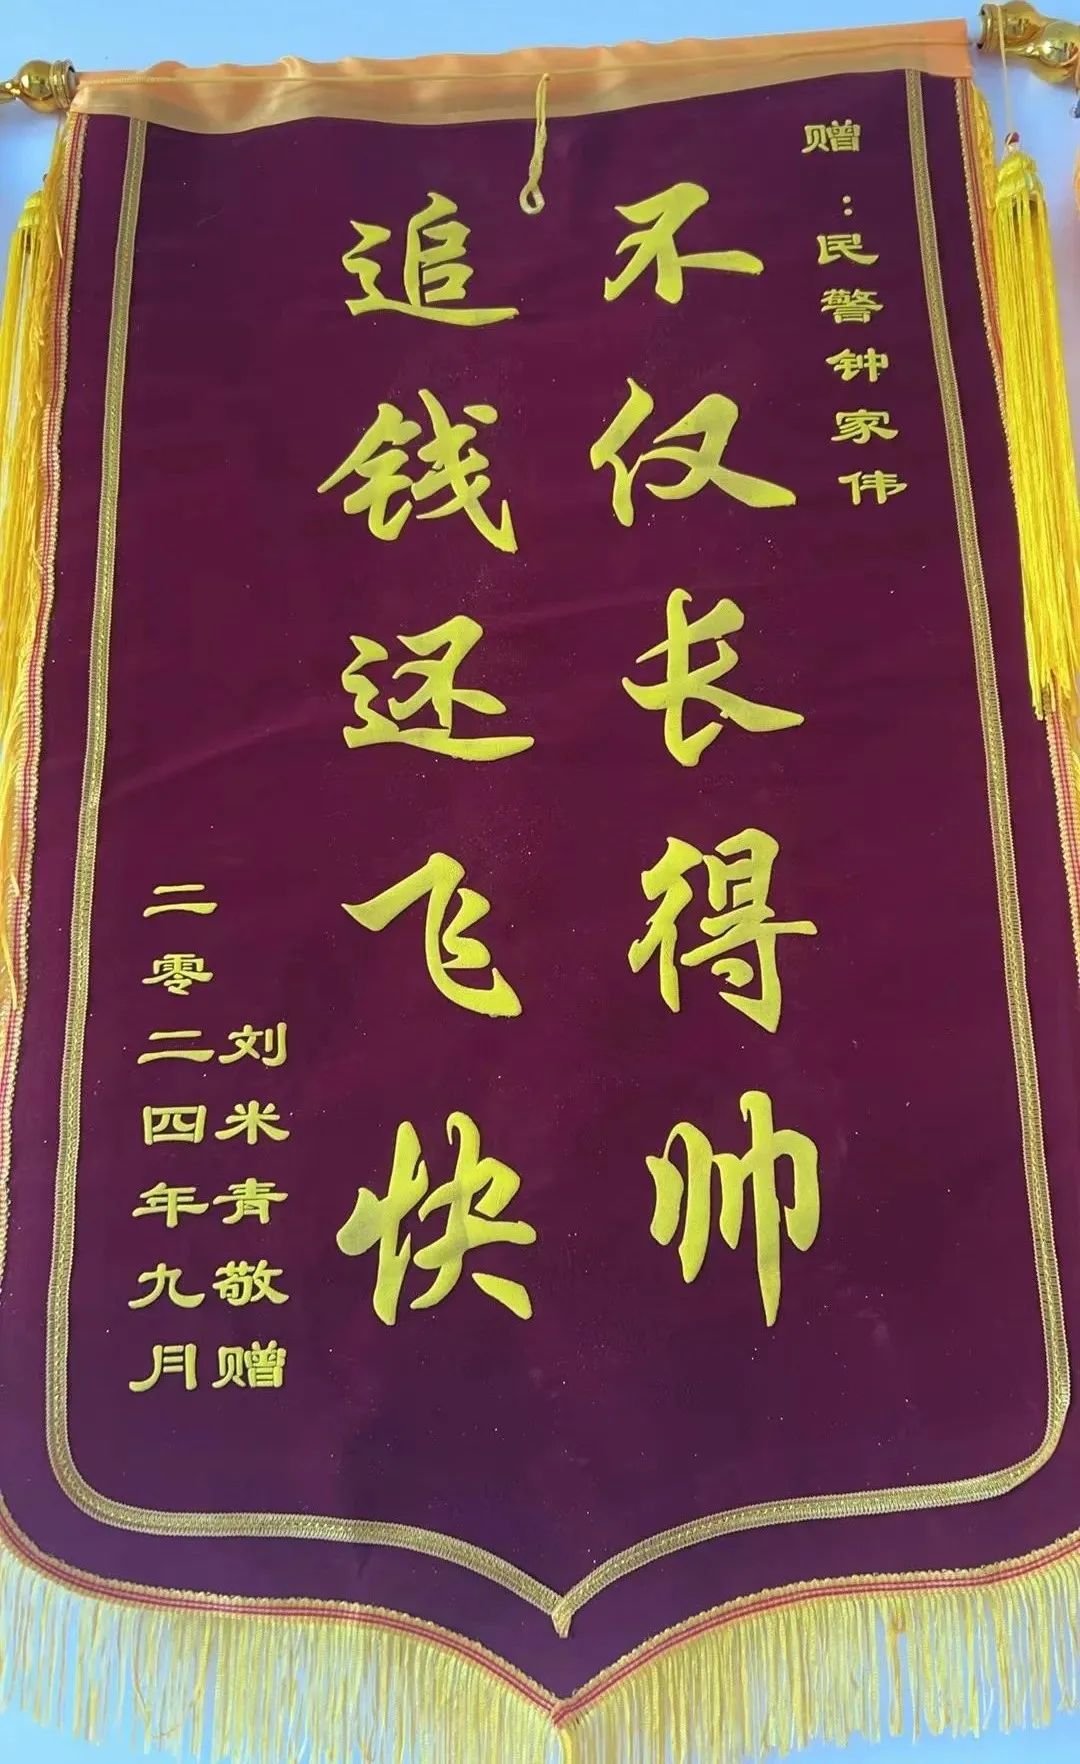 赠:民警钟家伟
不仅长得帅
追钱还飞快
刘米青敬赠
二零二四年九月